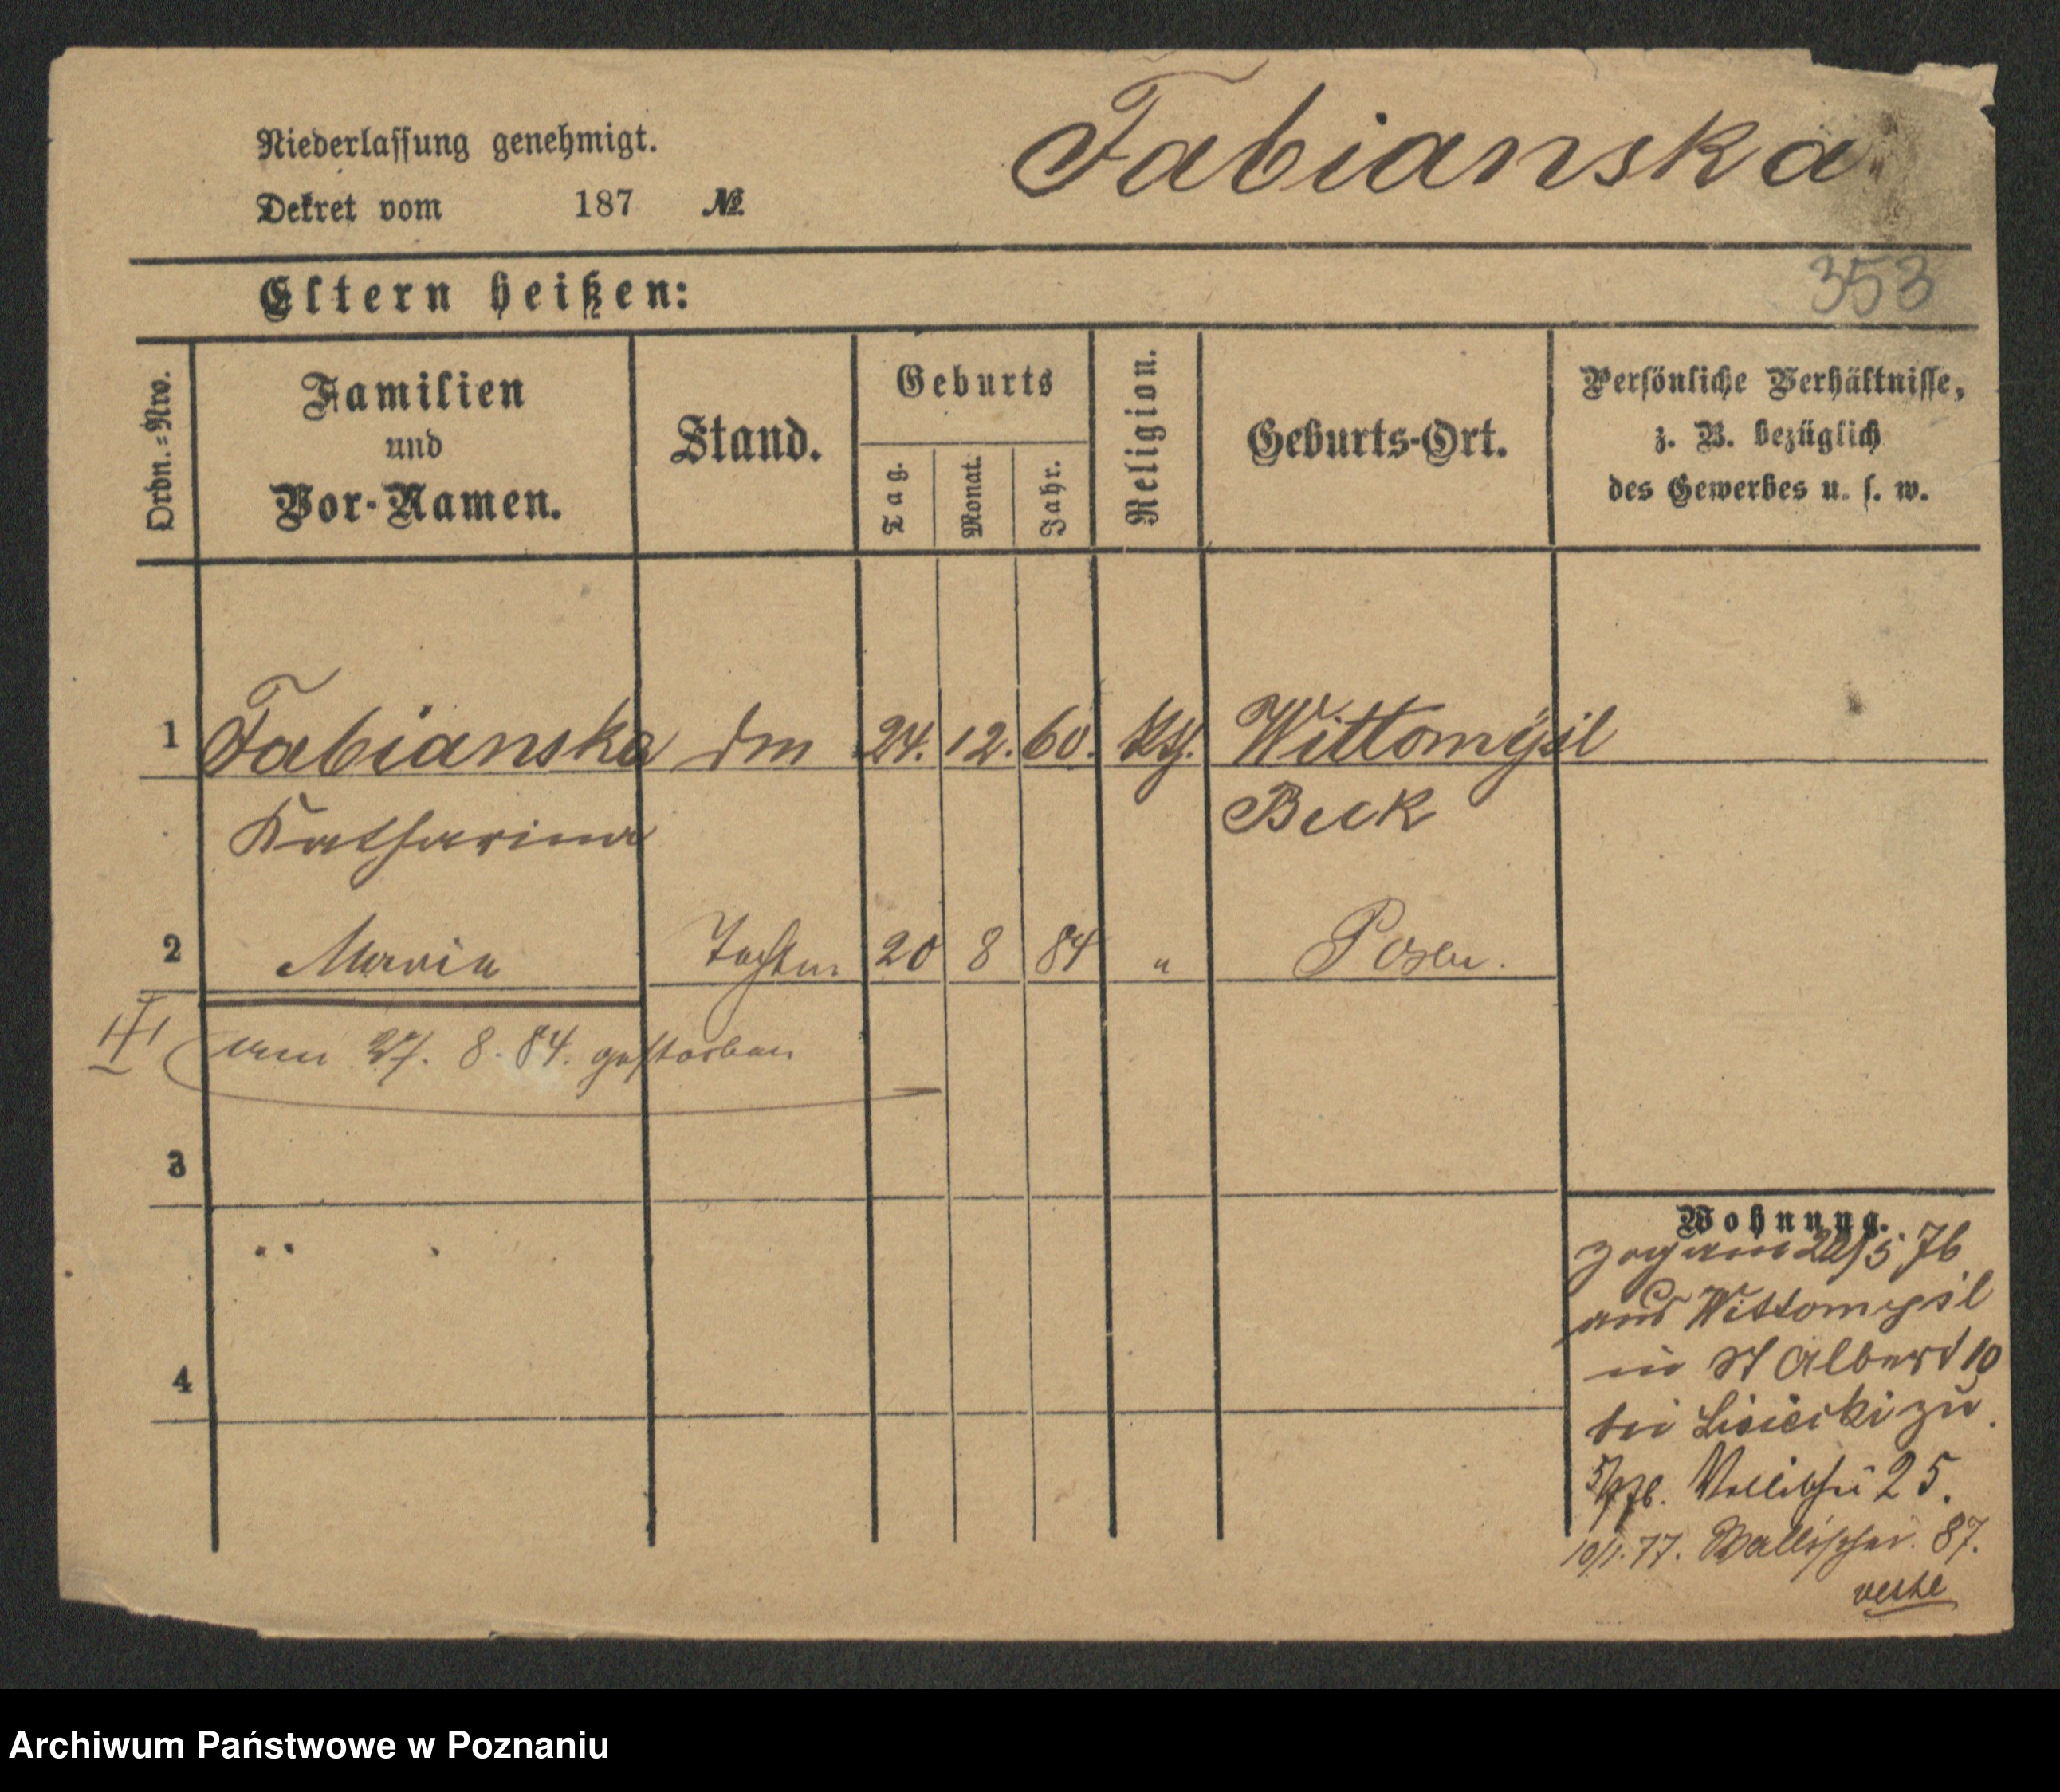 Niederlassung genehmigt.
Dekret vom 187 No.
Fabianska
353
Eltern heißen:
Ordn.=Nro.
Familien
und
Vor-Namen.
Stand.
Geburts
Tag.
Monat.
Jahr.
Religion.
Geburts-Ort.
Persönliche Verhältnisse,
z. B. bezüglich
des Gewerbes u. s. w.
1 Fabianska dm 24. 12. 60. Wittomysil
Katharina Buk
2 Maria Tochter 20 8 84 " Posen.
am 27. 8. 84. gestorben
3
4
Wohnung.
zog am 5 76
aus Wittomysil
in St Adalbert 10
bei Lisiecki zu.
Wallischei 25.
10/1. 77. Wallischei. 87.
Archiwum Państwowe w Poznaniu